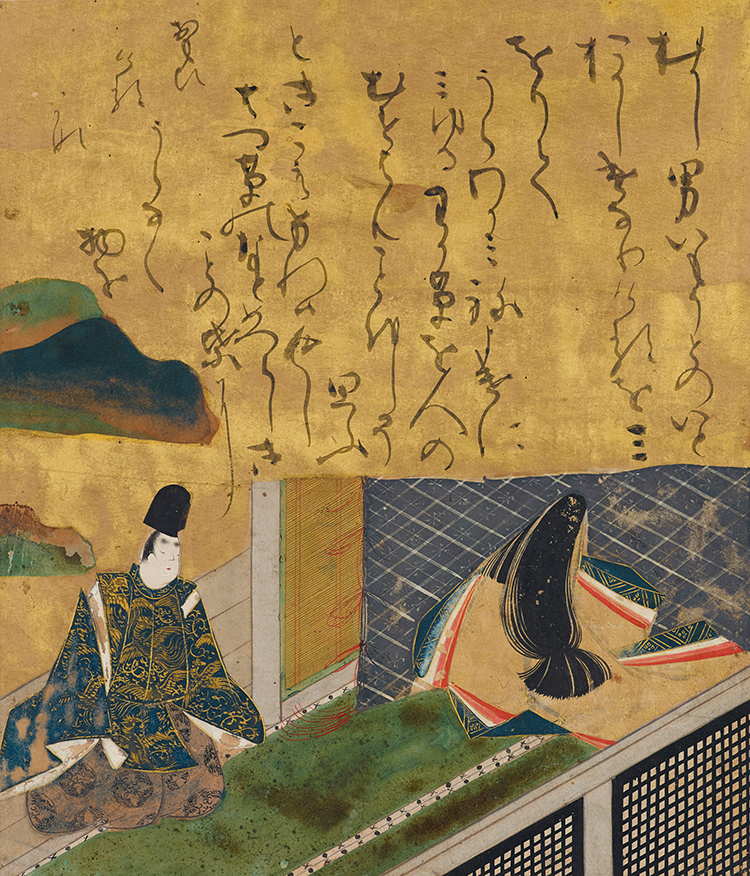 むかし男いもうとのいと
おかしきなりけるをみ
をりて
うらわかみねよけに
みゆるわか草を人の
むすはんことをしそ
思ふ
ときこえかへし
はつ草のなとめつらしき
ことの葉そ
うらなく
物を
おもひ
ける
かな